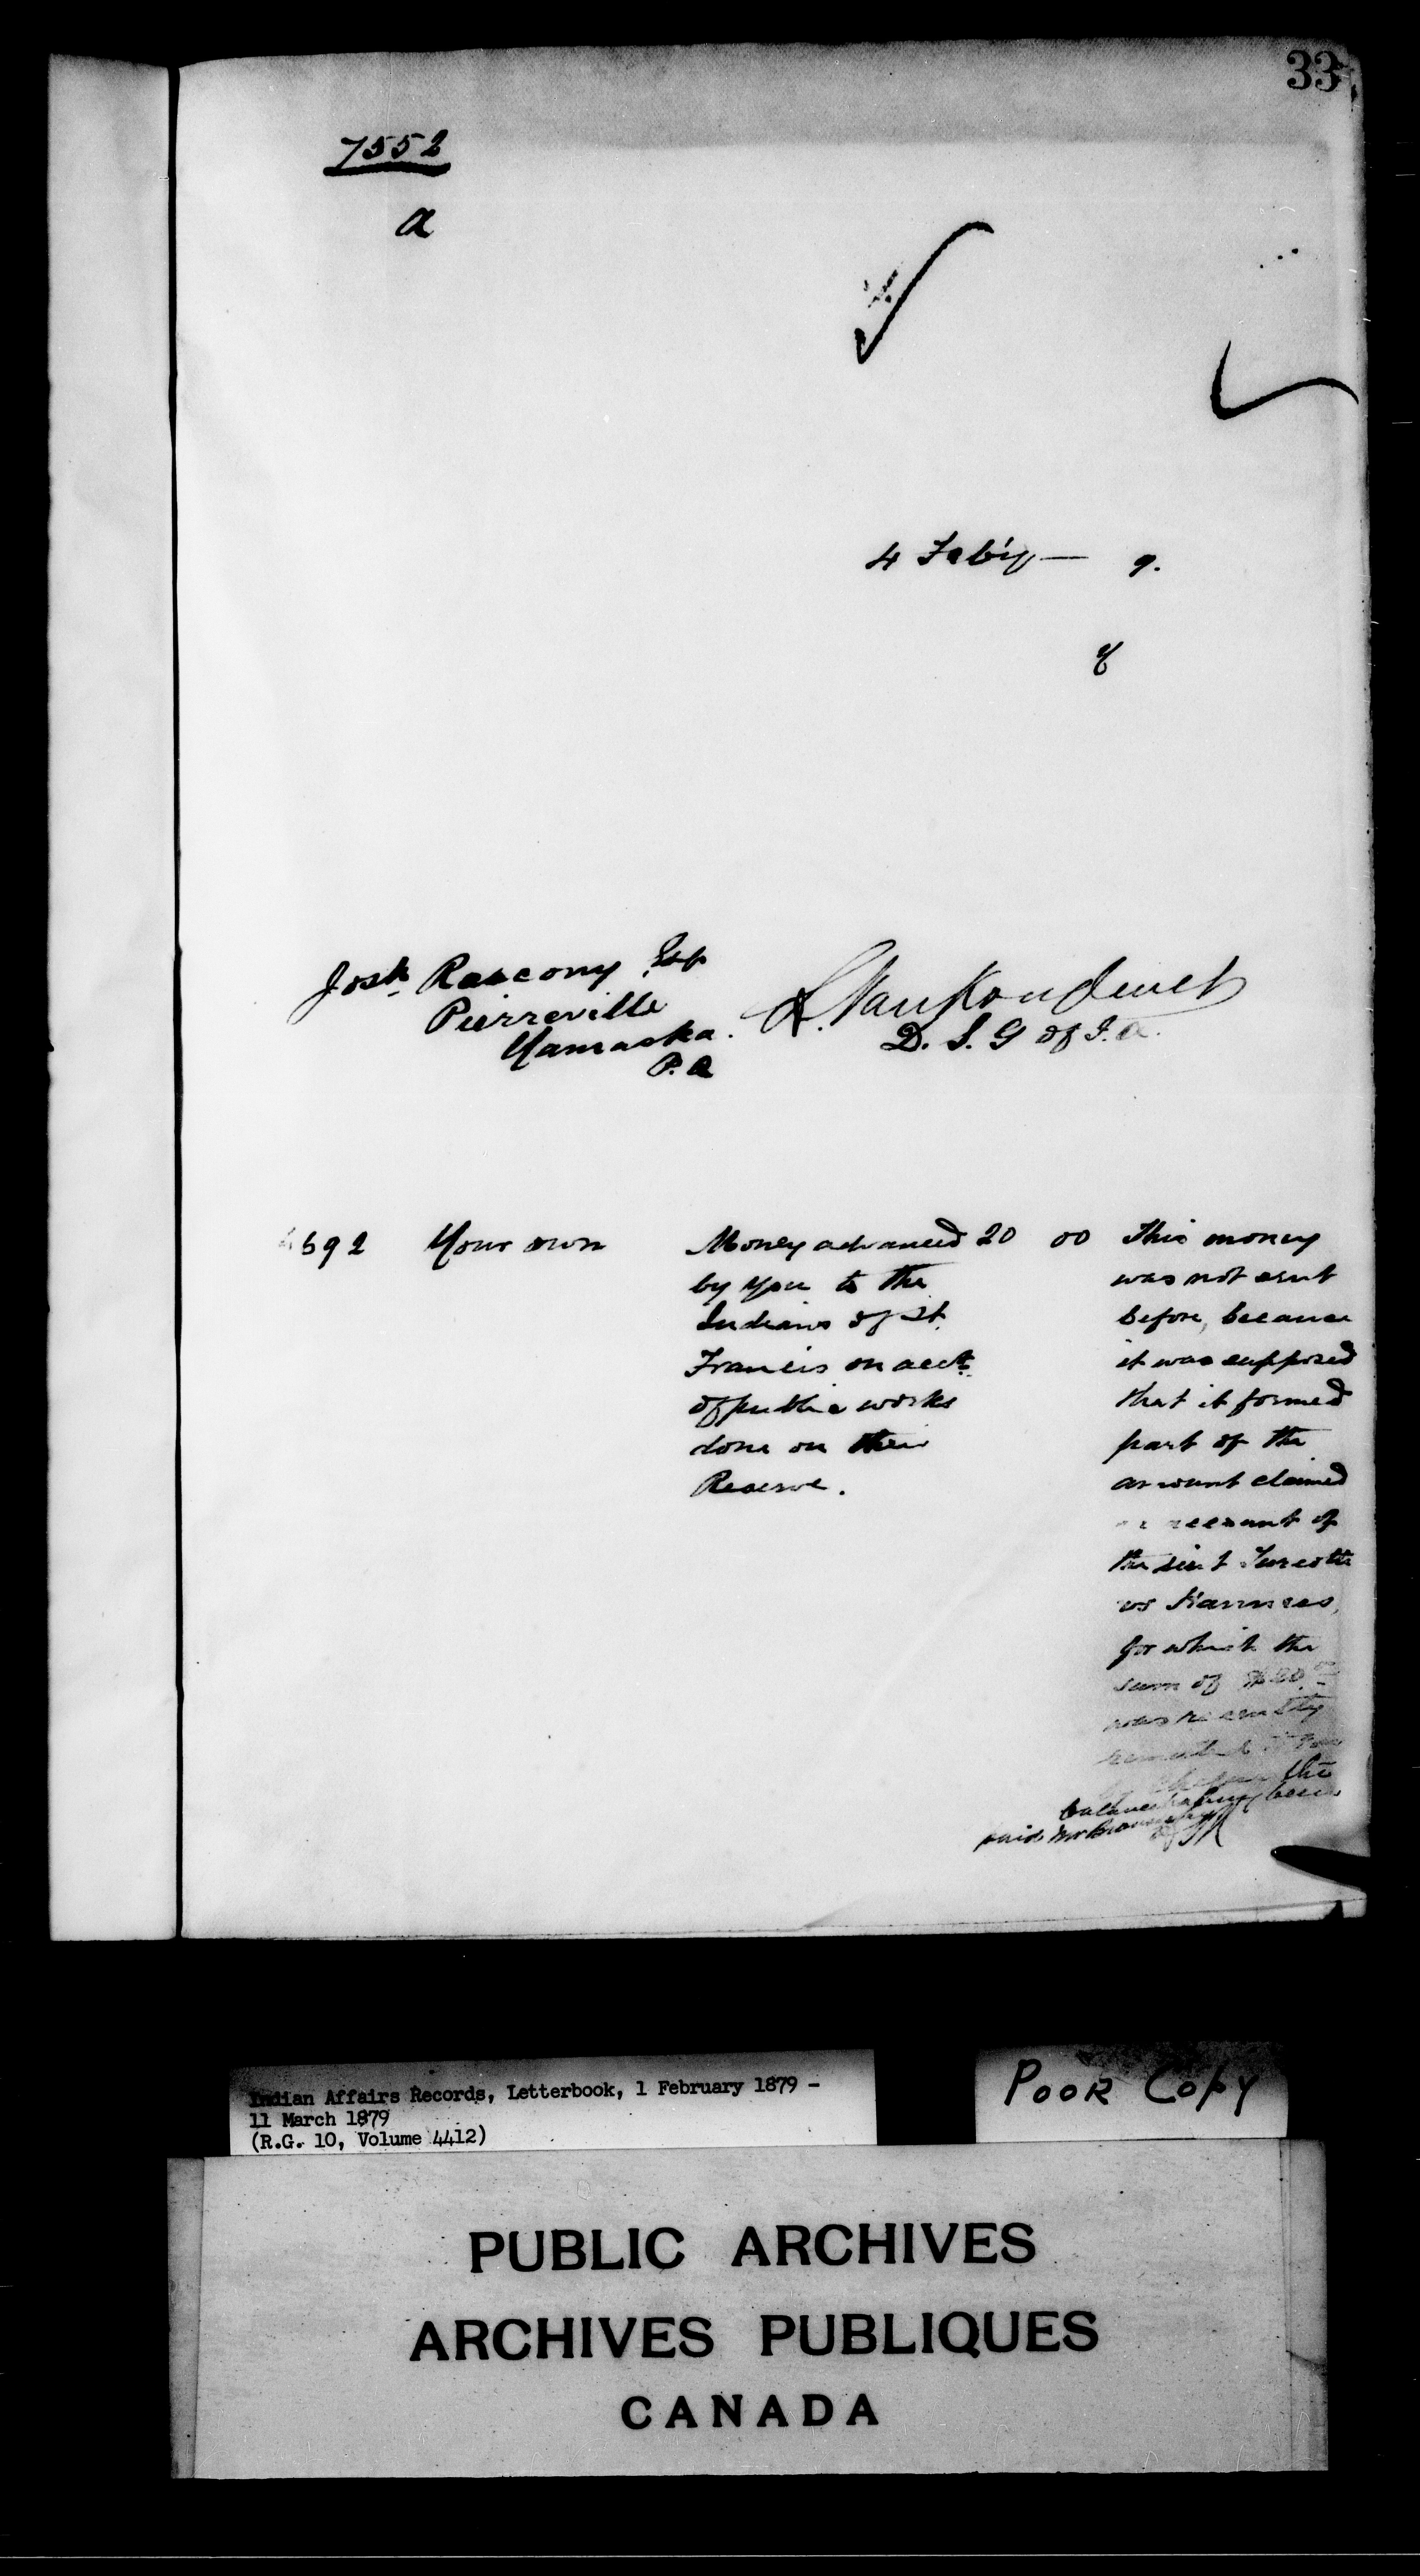 33
7552
a
4 Feb'y — 9.
8
Josh Rascony Esq
Pierreville
Yamaska.
P.Q
L. VanKoughnet
D. S. G of I. a.
592 Your own
Money advanced 20 00
by you to the
Indians of St.
Francis on acct.
of public works
done on their
Reserve.
This money
was not sent
before, because
it was supposed
that it formed
part of the
amount claimed
account of
the Turcotte
vs
for which the
sum of
was recently
the
balance having been
paid Mr
Indian Affairs Records, Letterbook, 1 February 1879 -
11 March 1879
(R.G. 10, Volume 4412)
POOR COPY
PUBLIC ARCHIVES
ARCHIVES PUBLIQUES
CANADA